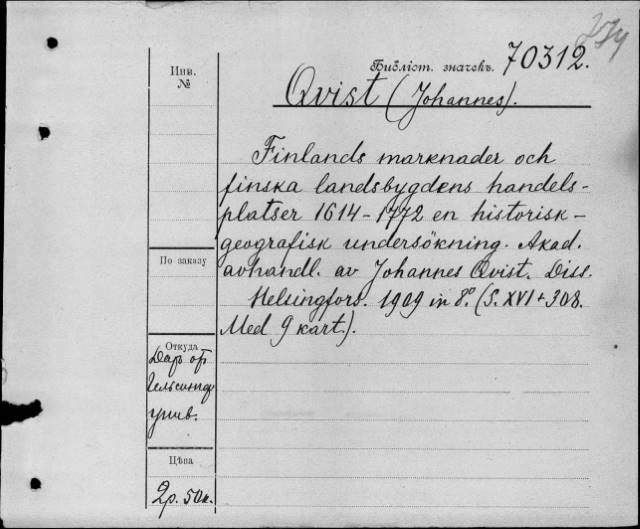 274
Библіот. значекъ. 70312.
Инв.
№
Qvist (Johannes).
Finlands marknader och
finska landsbygdens handels-
platser 1614-1772 en historisk-
geografisk undersökning. Akad.
avhandl. av Johannes Qvist. Diss.
Helsingfors. 1909 in 8.° (S. XVI + 308.
Med 9 kart.).
По заказу
Откуда
Даръ от
Гельсингф
унив.
Цѣна
2р. 50к.